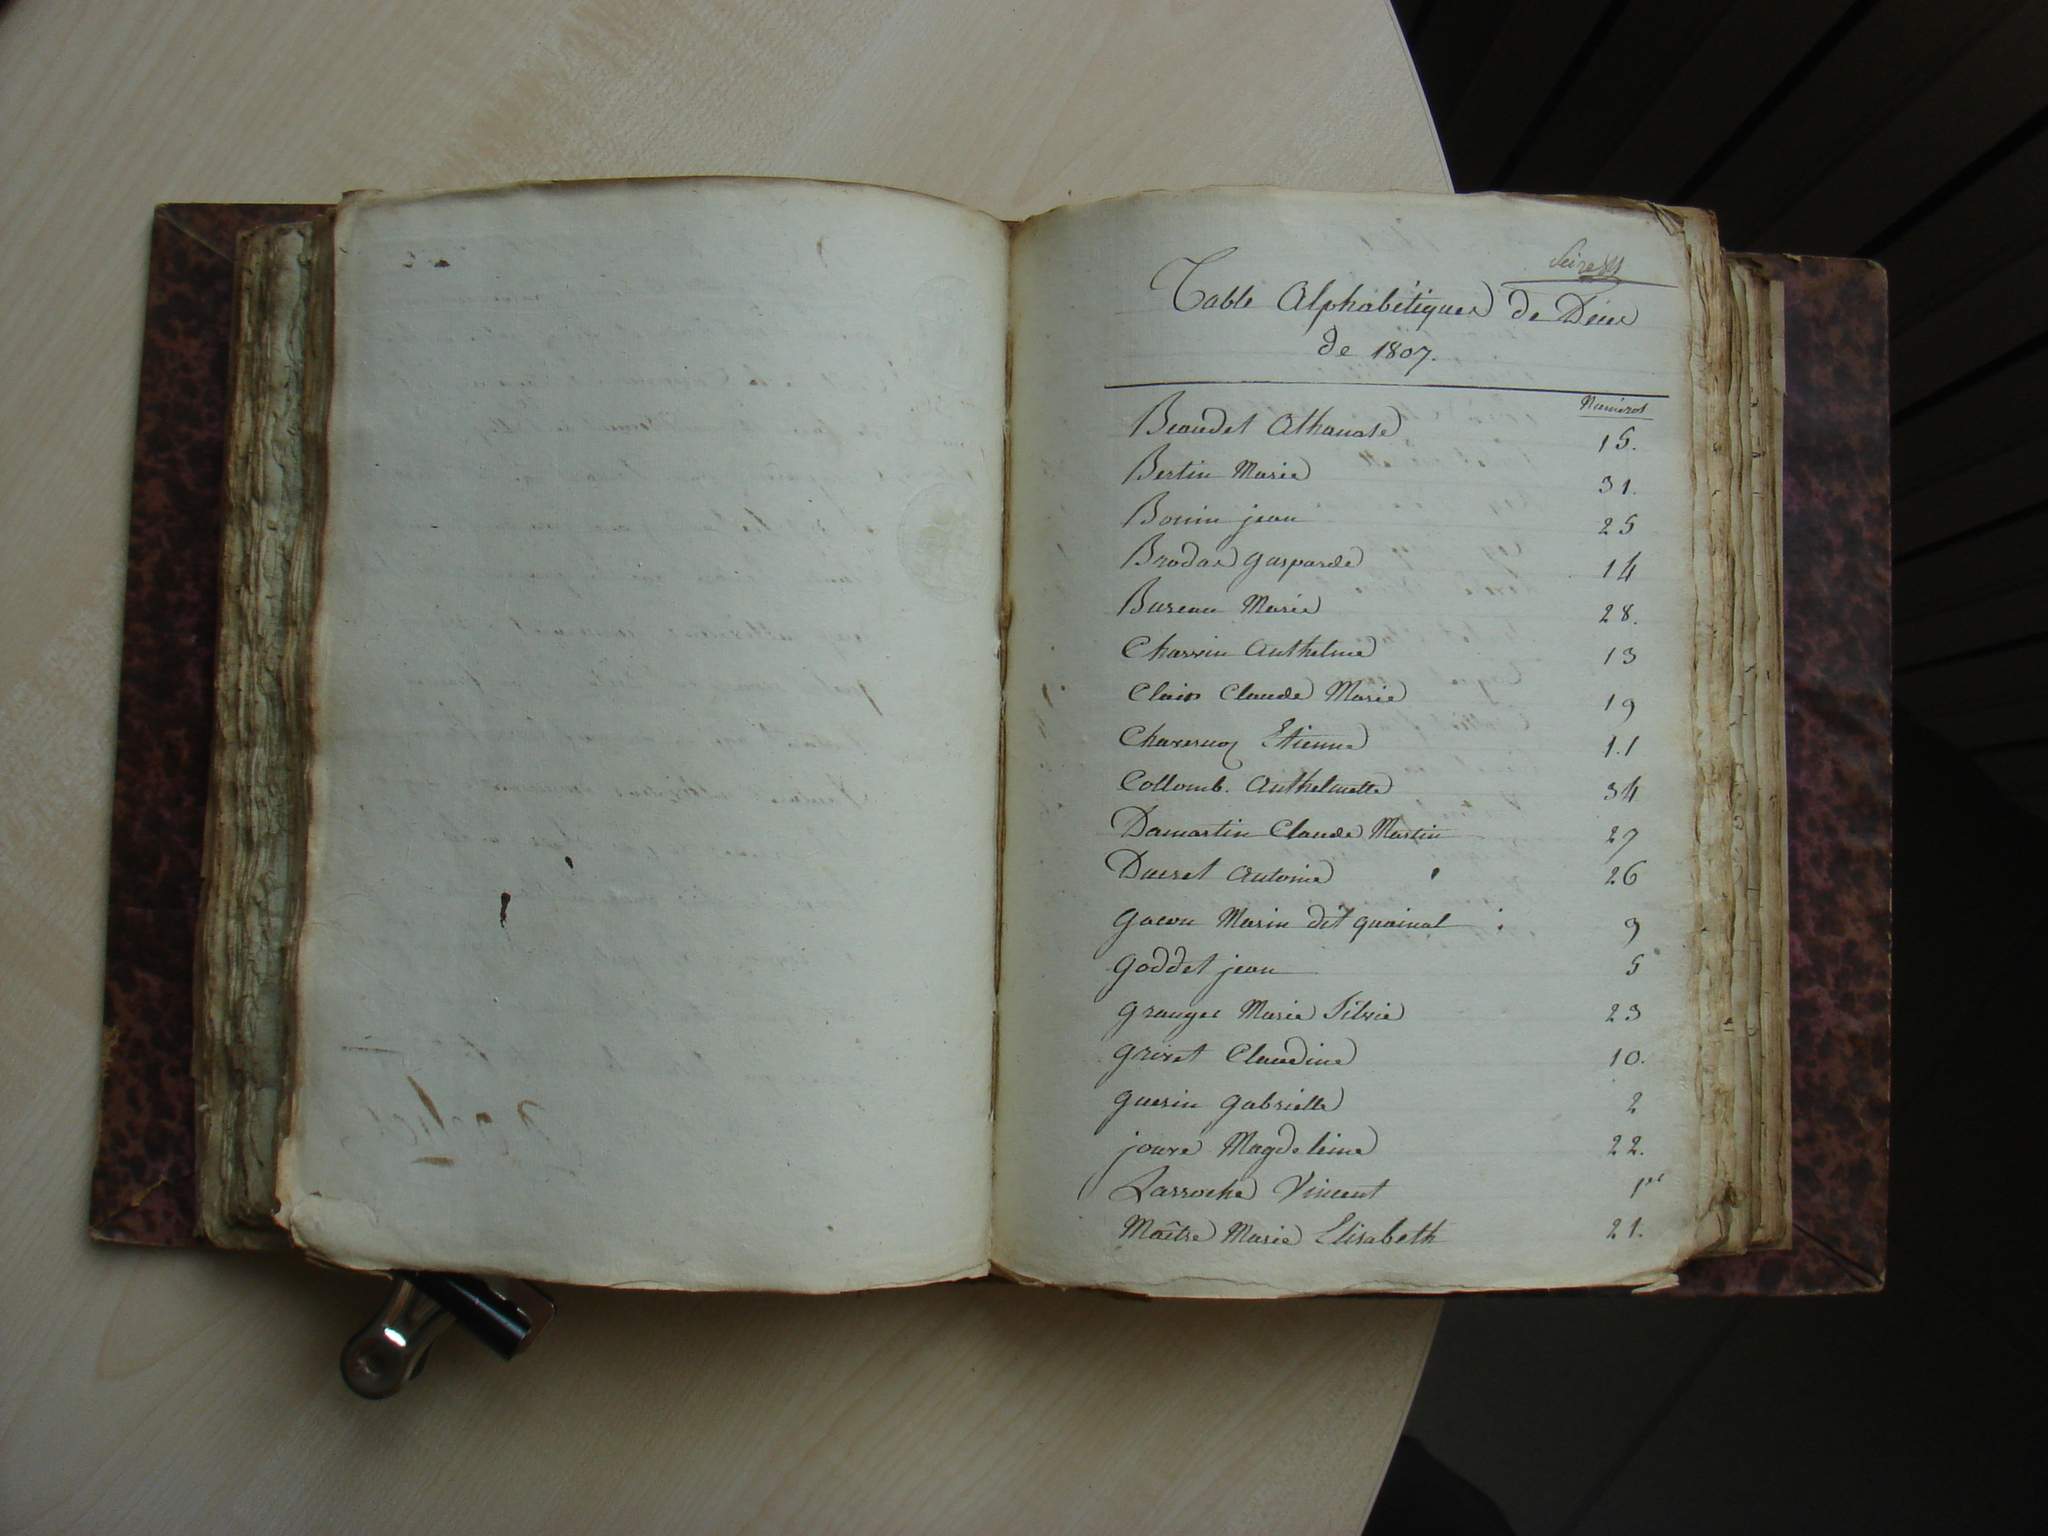 Table Alphabétique de Décès
de 1807.
Numéros
Beaudet Athanase 15.
Bertin Marie 31.
Bonin jean 25
Brodae gasparde 14
Bureau Marie 28.
Charvin Anthelme 13
Clain Claude Marie 19
Etienne 11
Collomb. Anthelmette 34
Damartin Claude Martin 27
Ducret Antoine 26
gacon Marin dit quainat 9
goddet jean 5
granger Marie Silvie 23
grivet Claudine 10.
guerin gabrielle 2
joure Magdeleine 22.
Larroche Vincent 1er
Maître Marie Elisabeth 21.